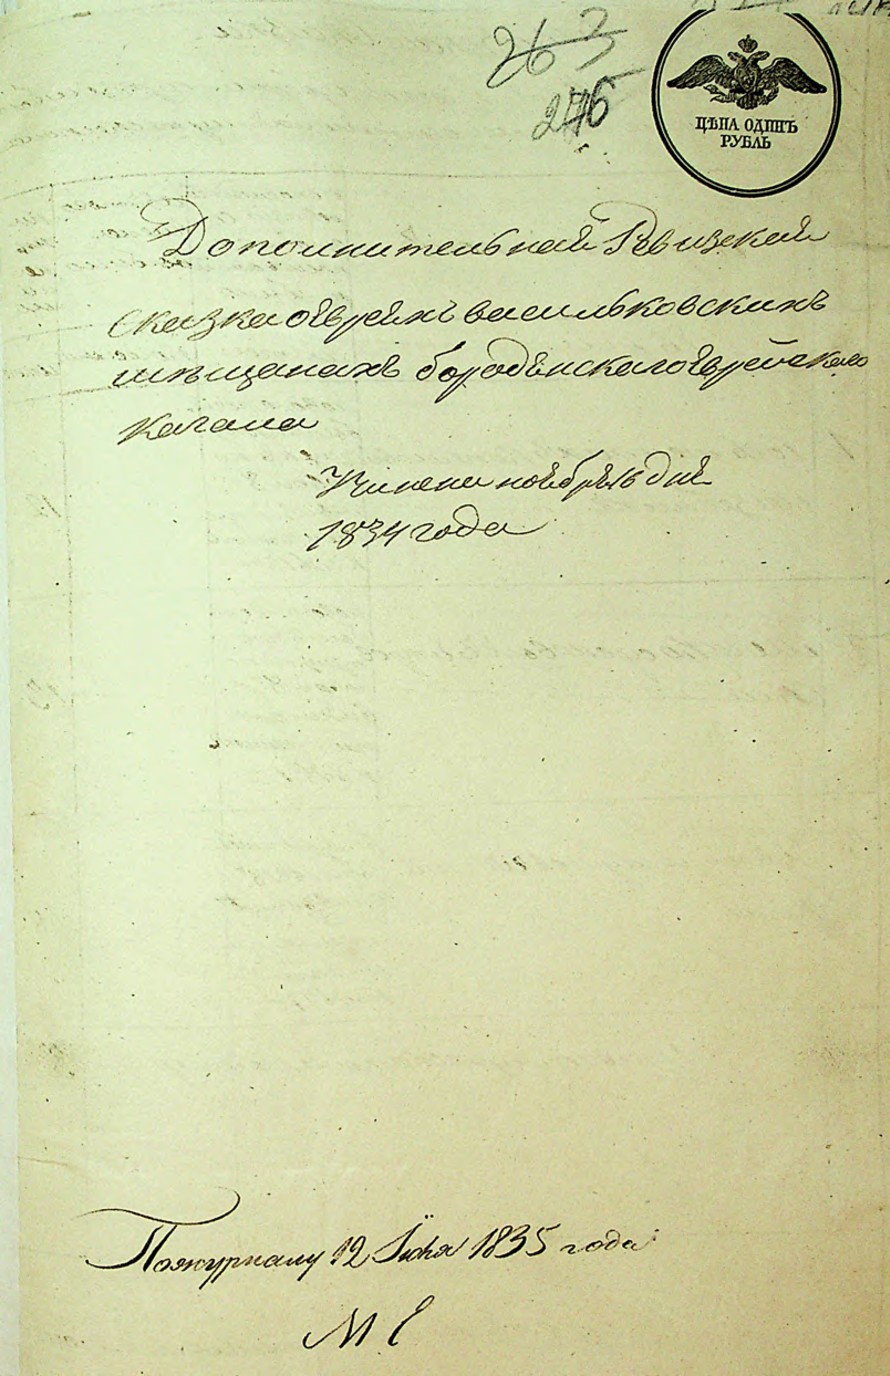 263
276
ЦѢНА ОДИНЪ
РУБЛЬ
Дополнительная Ревизская
Сказка оевреяхъ васильковскихъ
мѣщанахъ бородянскаго еврейскаго
кагала
Учинена ноября дня
1834 года
Пожурналу 12 Іюня 1835 года
М Е